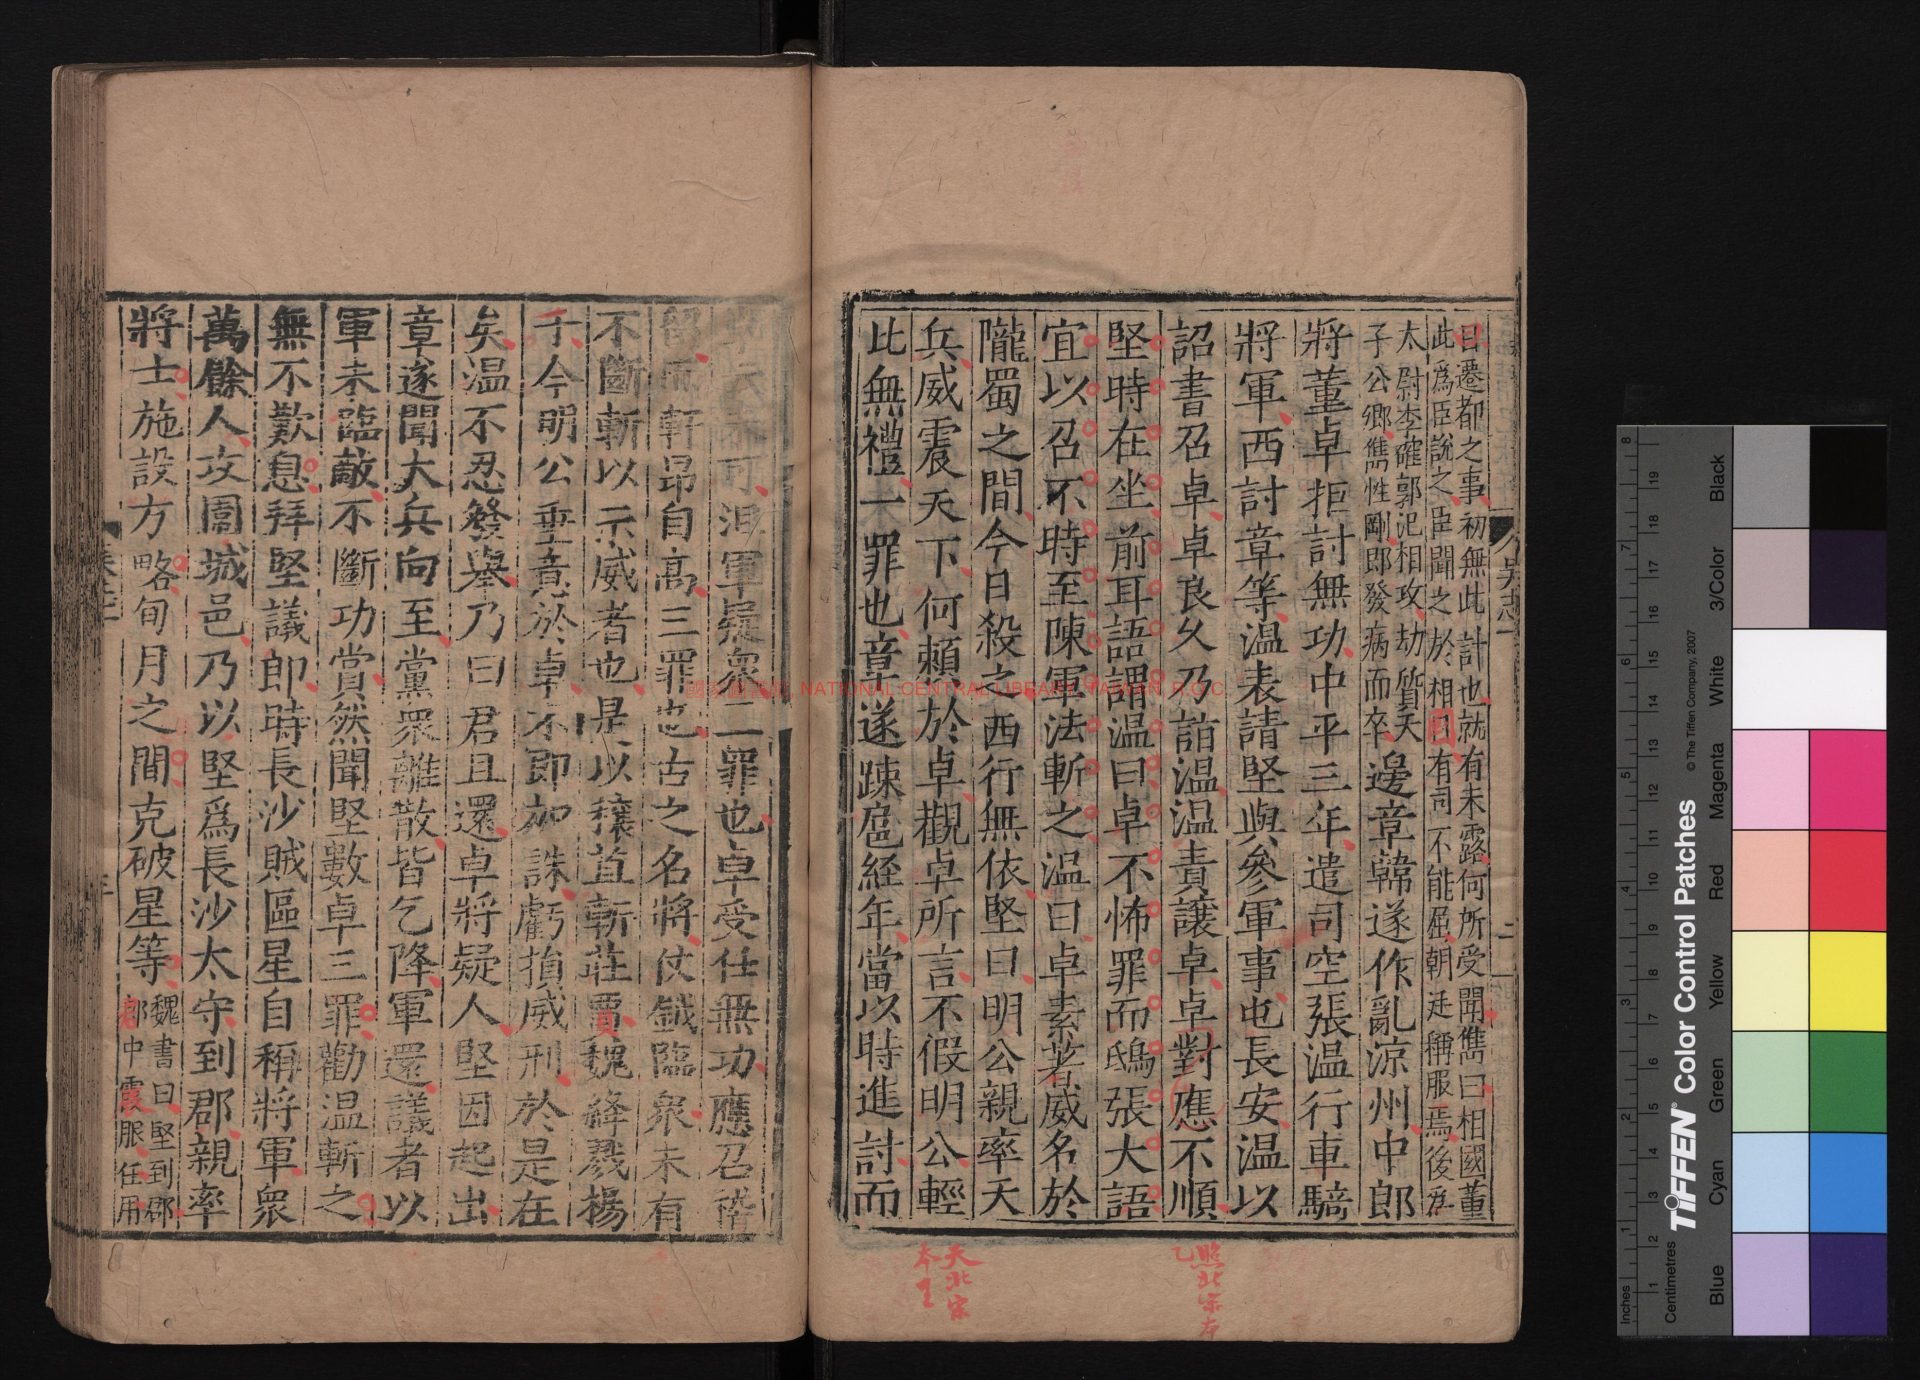 曰遷都之事初無此計也就有未露何所受聞儁曰相國董
此爲臣說之臣聞之於相國有司不能屈朝廷稱服焉後爲
太尉李傕郭汜相攻劫質天
子公卿儁性剛即發病而卒
邊章韓遂作亂涼州中郎
將董卓拒討無功中平三年遣司空張溫行車騎
將軍西討章等溫表請堅與參軍事屯長安溫以
詔書召卓卓良久乃詣溫溫責讓卓卓對應不順
堅時在坐前耳語謂溫曰卓不怖罪而鴟張大語
宜以召不時至陳軍法斬之溫曰卓素著威名於
隴蜀之間今日殺之西行無依堅曰明公親率天
兵威震天下何賴於卓觀卓所言不假明公輕
比無禮一罪也章遂跋扈經年當以時進討而
可沮軍疑衆二罪也卓受任無功應召稽
留而軒昂自高三罪也古之名將仗鉞臨衆未有
不斷斬以示威者也是以穰苴斬莊賈魏絳戮楊
干今明公垂意於卓不即加誅虧損威刑於是在
矣溫不忍發舉乃曰君且還卓將疑人堅因起出
章遂聞大兵向至黨衆離散皆乞降軍還議者以
軍未臨敵不斷功賞然聞堅數卓三罪勸溫斬之
無不歎息拜堅議郎時長沙賊區星自稱將軍衆
萬餘人攻圍城邑乃以堅爲長沙太守到郡親率
將士施設方略旬月之間克破星等
魏書曰堅到郡
郡中震服任用
吳志一
照北宋本
乙
天北宋
本
國家圖書館 NATIONAL CENTRAL LIBRARY, TAIWAN, R.O.C.
TIFFEN® Color Control Patches
© The Tiffen Company, 2007
Inches
1 2 3 4 5 6 7 8
Centimetres
1 2 3 4 5 6 7 8 9 10 11 12 13 14 15 16 17 18 19
Blue
Cyan
Green
Yellow
Red
Magenta
White
3/Color
Black